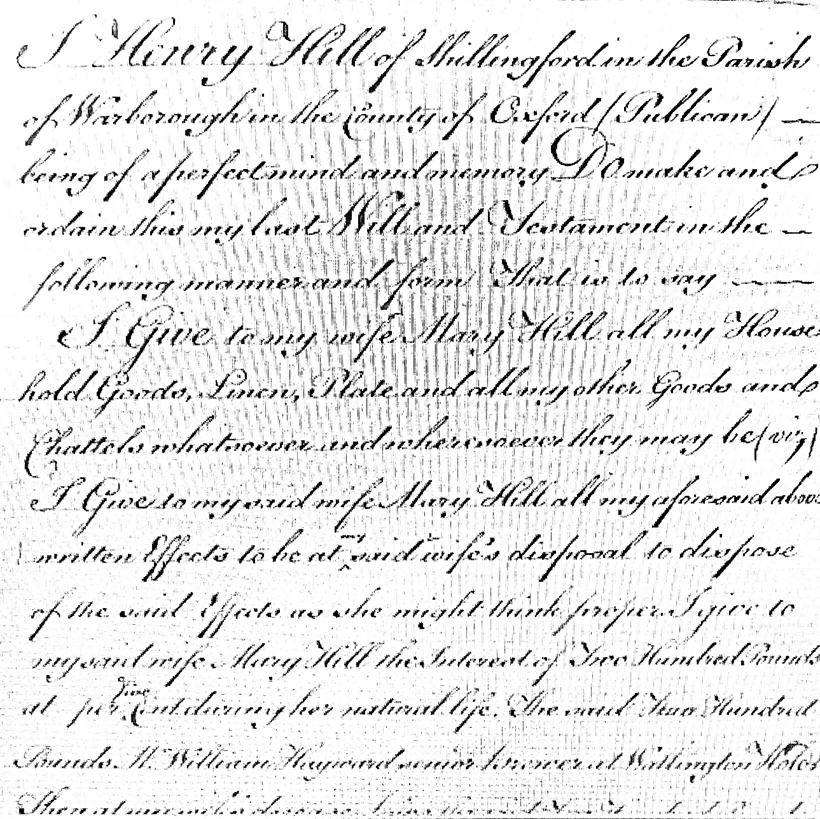 I Henry Hill of Shillingford in the Parish
of Warborough in the County of Oxford (Publican) —
being of a perfect mind and memory Do make and
ordain this my last Will and Testament in the —
following manner and form That is to say —
I Give to my wife Mary Hill all my House
hold Goods, Linen, Plate and all my other Goods and
Chattels whatsoever and wheresoever they may be (viz)
I Give to my said wife Mary Hill all my aforesaid above
written Effects to be at my said wife's disposal to dispose
of the said Effects as she might think proper I give to
my said wife Mary Hill the Interest of Two Hundred Pounds
at five per Cent during her natural life. The said Two Hundred
Pounds Mr. William Hayward senior brewer at Watlington Holds
Then at my wife's decease